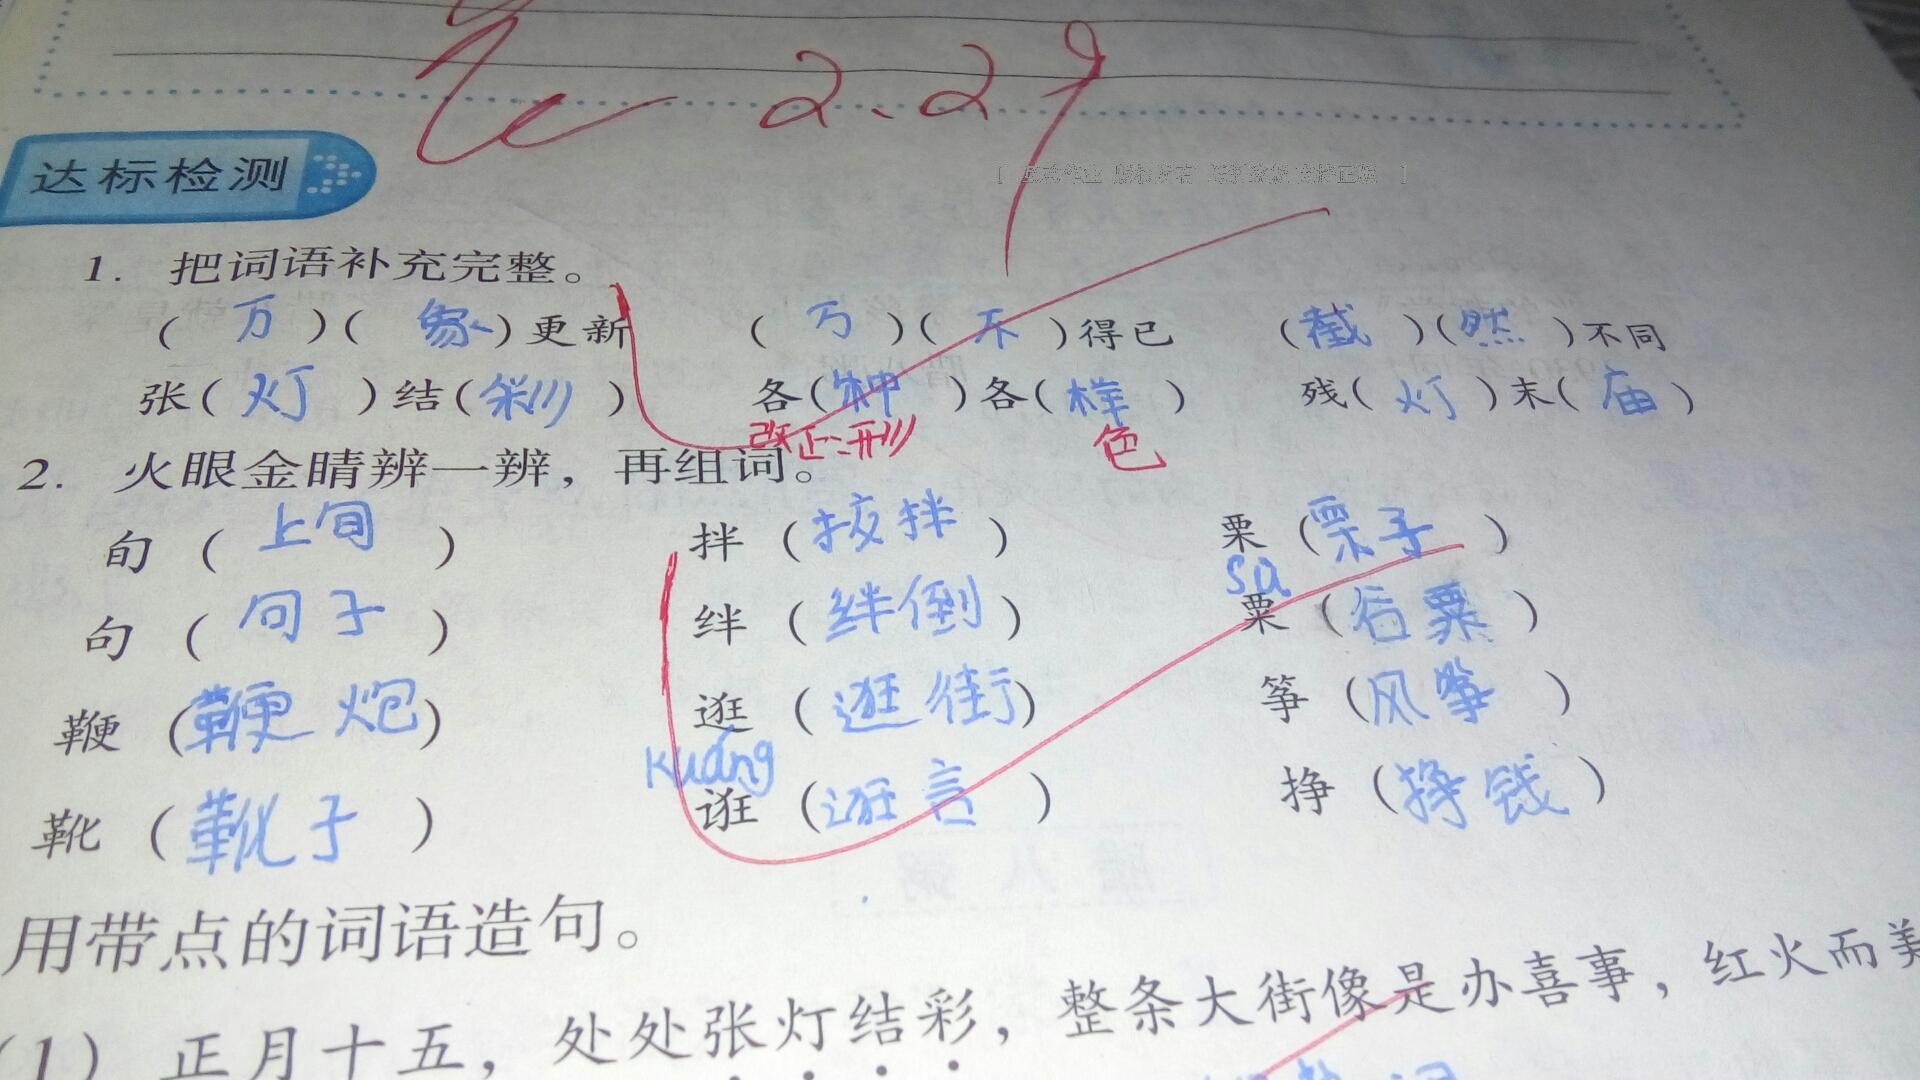 2.29
达标检测
1. 把词语补充完整。
(万)(象)更新 (万)(不)得已 (截)(然)不同
张(灯)结(彩) 各(种)各(样) 残(灯)末(庙)
改正:形 色
2. 火眼金睛辨一辨，再组词。
旬(上旬) 拌(搅拌) 栗(栗子)
su
句(句子) 绊(绊倒) 粟(谷粟)
鞭(鞭炮) 逛(逛街) 筝(风筝)
kuáng
靴(靴子) 诳(诳言) 挣(挣钱)
用带点的词语造句。
(1) 正月十五，处处张灯结彩，整条大街像是办喜事，红火而美